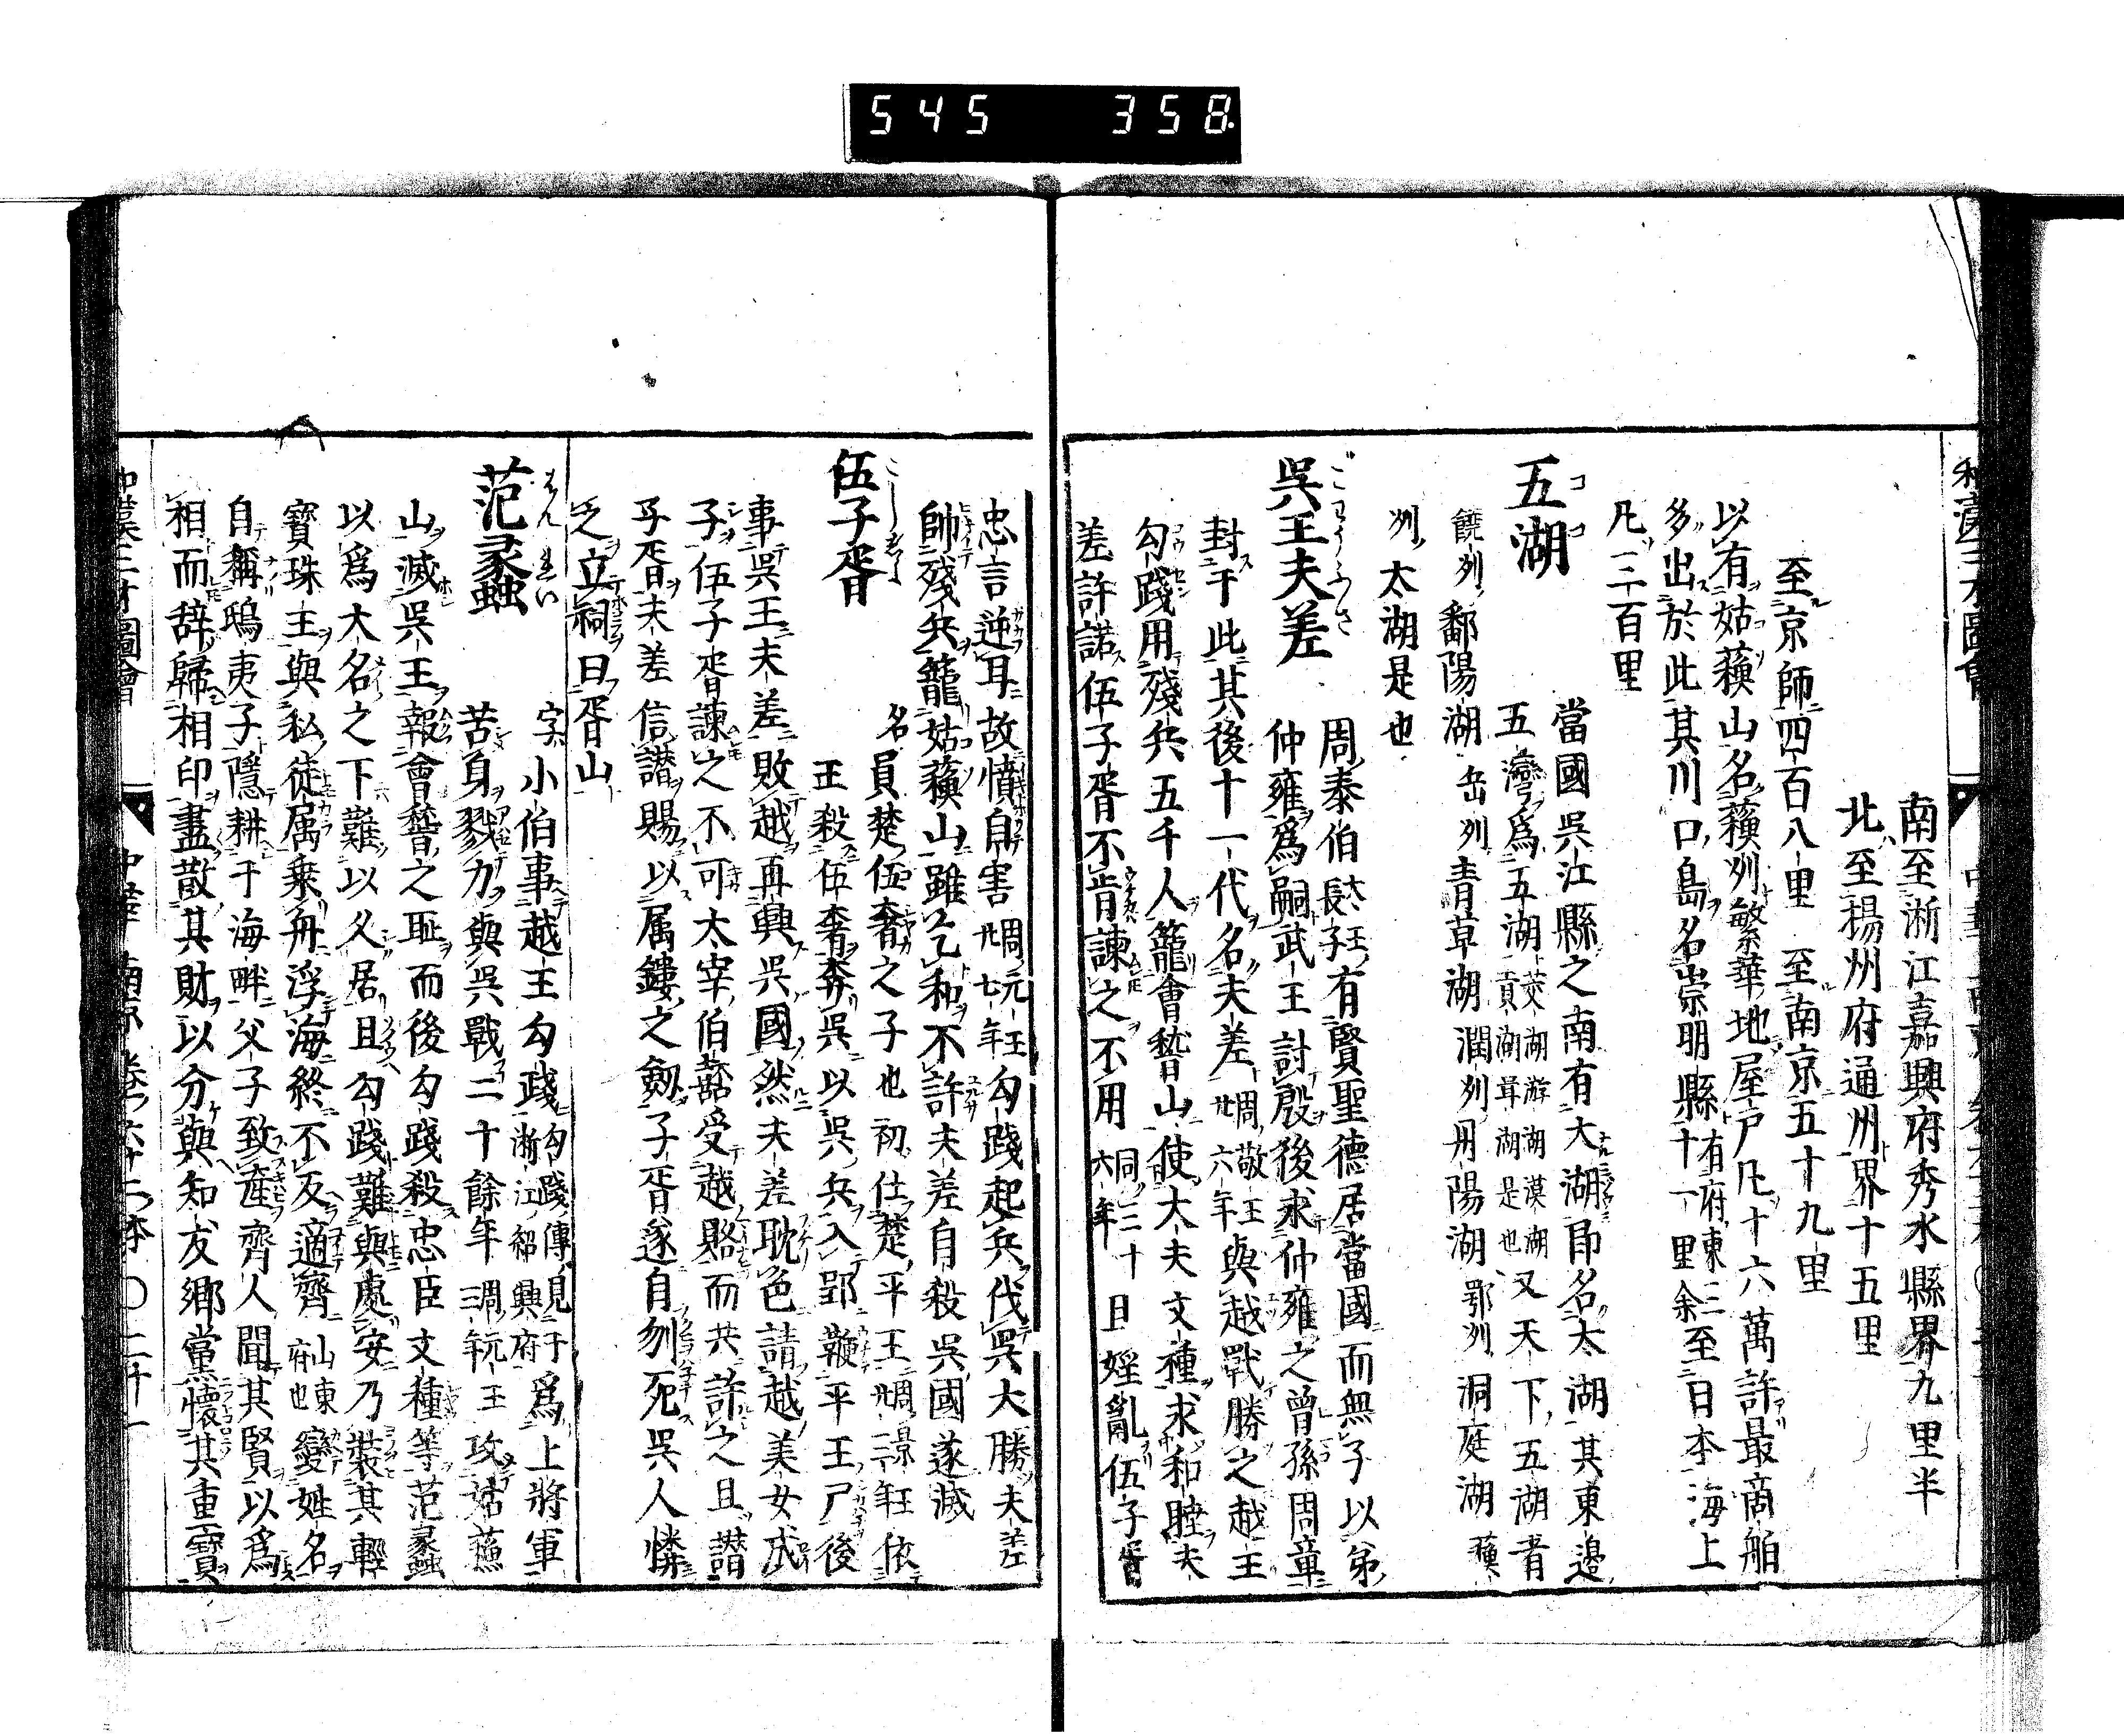 545 358
和漢三才圖會
南至淅江嘉興府秀水縣界九里半
北至揚州府通州界十五里
至京師四百八里 至南京五十九里
以有姑蘓山名蘓州繁華地屋戸凡十六萬許最商舶
多出於此其川口島名崇明縣有府東三十一里余至日本海上
凡三百里
五湖
當國呉江縣之南有大湖即名太湖其東邊
五灣爲五湖茭湖游湖漠湖貢湖胥湖是也又天下五湖者
饒州鄱陽湖 岳州青草湖 潤州丹陽湖 鄂州洞庭湖 蘓
州太湖是也
呉王夫差
周泰伯太王長子有賢聖德居當國而無子以弟
仲雍爲嗣武王討殷後求仲雍之曾孫周章
封于此其後十一代名夫差周敬王廿六年與越戰勝之越王
勾踐用殘兵五千人籠會嵆山使大夫文種求和睦夫
差許諾伍子胥不肯諫之不用同三十六年且婬亂伍子胥
忠言逆耳故憤自害周元王七年勾踐起兵伐呉大勝夫差
帥殘兵籠姑蘓山雖乞和不許夫差自殺呉國遂滅
伍子胥
名員楚伍奢之子也初仕楚平王周景王廿二年依
王殺伍奢奔呉以呉兵入郢鞭平王尸後
事呉王夫差敗越再興呉國然夫差耽色請越美女成
子伍子胥諫之不可太宰伯嚭受越賂而共許之且譛
子胥夫差信譛賜以属鏤之劔子胥遂自刎死呉人憐
之立祠曰胥山
范蠡
字小伯事越王勾踐勾踐傳見于淅江紹興府爲上將軍
苦身戮力與呉戰二十餘年周元王三年攻姑蘓
山滅呉王報會嵆之耻而後勾踐殺忠臣文種等范蠡
以爲大名之下難以久居且勾踐難與處安乃裝其輕
寶珠玉與私徒属乗舟浮海終不反適齊山東府也變姓名
自稱鴟夷子隱耕于海畔父子致產齊人聞其賢以爲
相而辞歸相印盡散其財以分與知友鄉黨懷其重寶